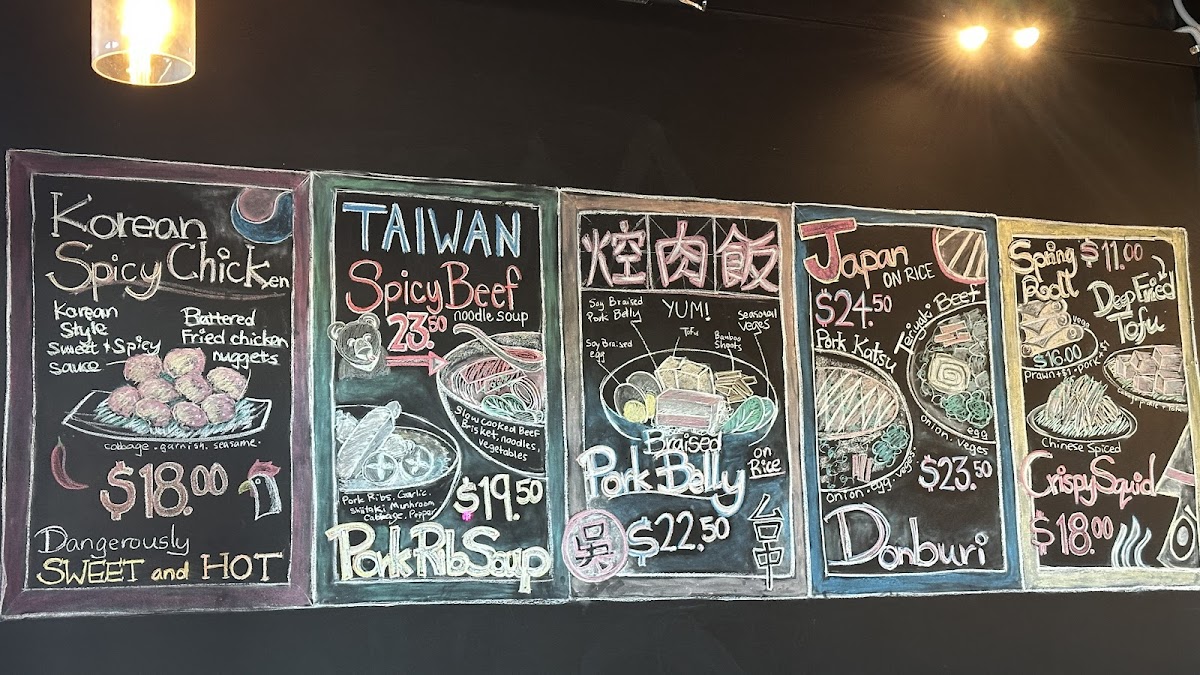 Korean
Spicy Chicken
Korean
Style
Sweet & Spicy
Sauce
Battered
Fried chicken
nuggets
cabbage. garnish. seasame.
$18.00
Dangerously
SWEET and HOT
TAIWAN
Spicy Beef
23.50
noodle soup
Slow cooked Beef
Brisket, noodles,
Vegetables
Pork Ribs, Garlic,
Shiitaki Mushroom
Cabbage, Pepper
$19.50
Pork Rib Soup
焢肉飯
Soy Braised
Pork Belly
YUM!
Seasonal
Veges
Tofu
Bamboo
Shoots
Soy Braised
egg
Braised
Pork Belly
on
Rice
吳
$22.50
台中
Japan
ON RICE
$24.50
Pork Katsu
Teriyaki Beef
onion. egg. veges
egg
onion. veges
$23.50
Donburi
Spring $11.00
Roll
Deep Fried
Tofu
vege
$16.00
Prawn +$1. Pork +$1
Chinese Spiced
Crispy Squid
$18.00